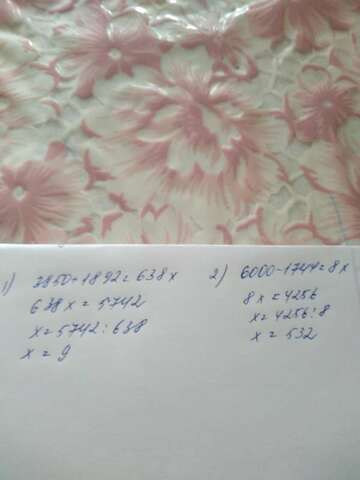 1) 3850+1892=638x
638x = 5742
x=5742:638
x = 9
2) 6000-1744=8x
8x=4256
x=4256:8
x = 532